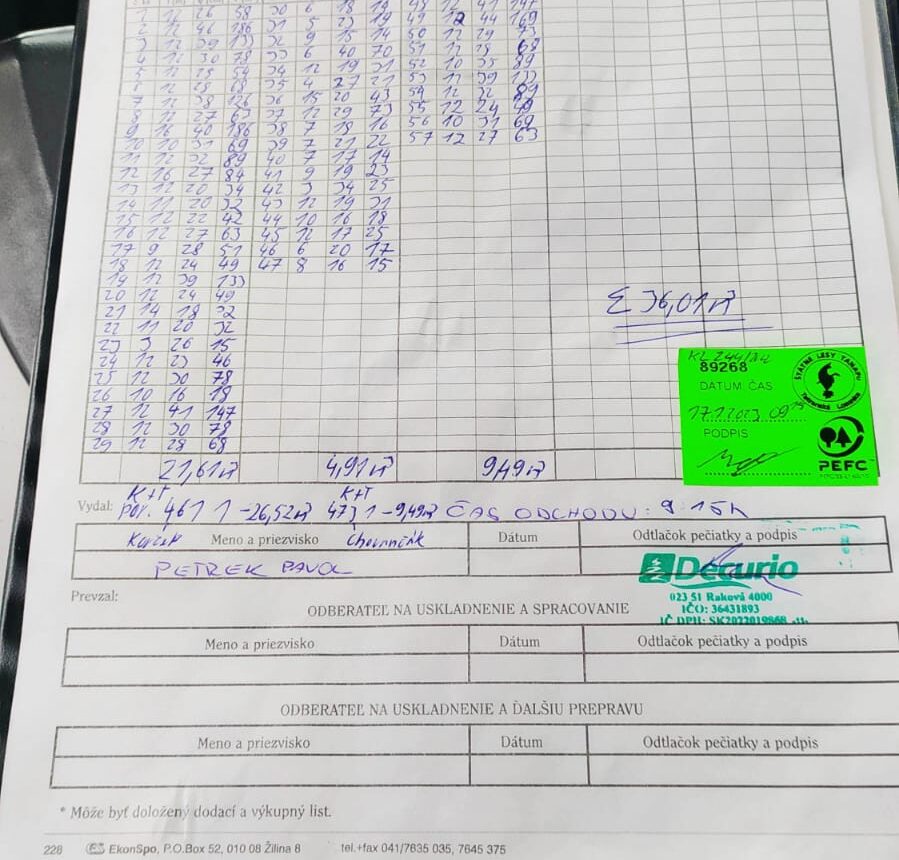 2 12 46 186 31 5 23 19 49 12 44 169
3 12 39 133 32 9 15 14 50 12 29 73
4 12 30 78 33 6 40 70 51 12 28 68
5 12 25 54 34 12 19 31 52 10 35 89
6 12 28 68 35 4 27 21 53 12 39 133
7 12 38 126 36 15 20 43 54 12 32 89
8 12 27 63 37 12 29 73 55 12 24 49
9 16 40 186 38 7 18 16 56 10 31 69
10 10 31 69 39 7 21 22 57 12 27 63
11 12 32 89 40 7 17 14
12 16 27 84 41 9 19 23
13 12 20 34 42 3 34 25
14 11 20 32 43 12 19 31
15 12 22 42 44 10 16 18
16 12 27 63 45 12 17 25
17 9 28 51 46 6 20 17
18 12 24 49 47 8 16 15
19 12 39 133
20 12 24 49
21 14 18 32
22 11 20 32
23 3 26 15
24 12 23 46
25 12 30 78
26 10 16 18
27 12 41 147
28 12 30 78
29 12 28 68
Σ 36,01 m³
89268
DATUM ČAS
17.1.2023 09 15
PODPIS
ŠTÁTNE LESY TANAPU
Tatranská Lomnica
PEFC
21,61 m³ 4,91 m³ 9,49 m³
K+T K+T
Vydal: POR. 461 1 -26,52 m³ 473 1 -9,49 m³ ČAS ODCHODU: 9 15h
Meno a priezvisko Dátum Odtlačok pečiatky a podpis
PETREK PAVOL
Decurio
023 51 Raková 4000
IČO: 36431893
IČ DPH: SK2022019868
Prevzal:
ODBERATEĽ NA USKLADNENIE A SPRACOVANIE
Meno a priezvisko Dátum Odtlačok pečiatky a podpis
ODBERATEĽ NA USKLADNENIE A ĎALŠIU PREPRAVU
Meno a priezvisko Dátum Odtlačok pečiatky a podpis
* Môže byť doložený dodací a výkupný list.
228 ES EkonSpo, P.O.Box 52, 010 08 Žilina 8 tel.+fax 041/7635 035, 7645 375